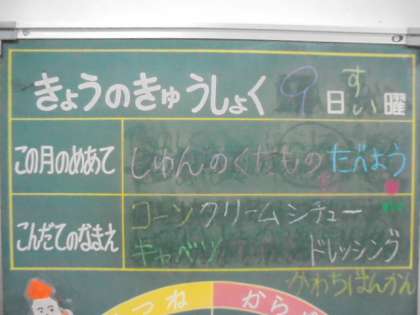 きょうのきゅうしょく 9日 すい曜
この月のめあて しゅんのくだものたべよう
こんだてのなまえ コーンクリームシチュー
キャベツ ドレッシング
かわちばんかん
つね から